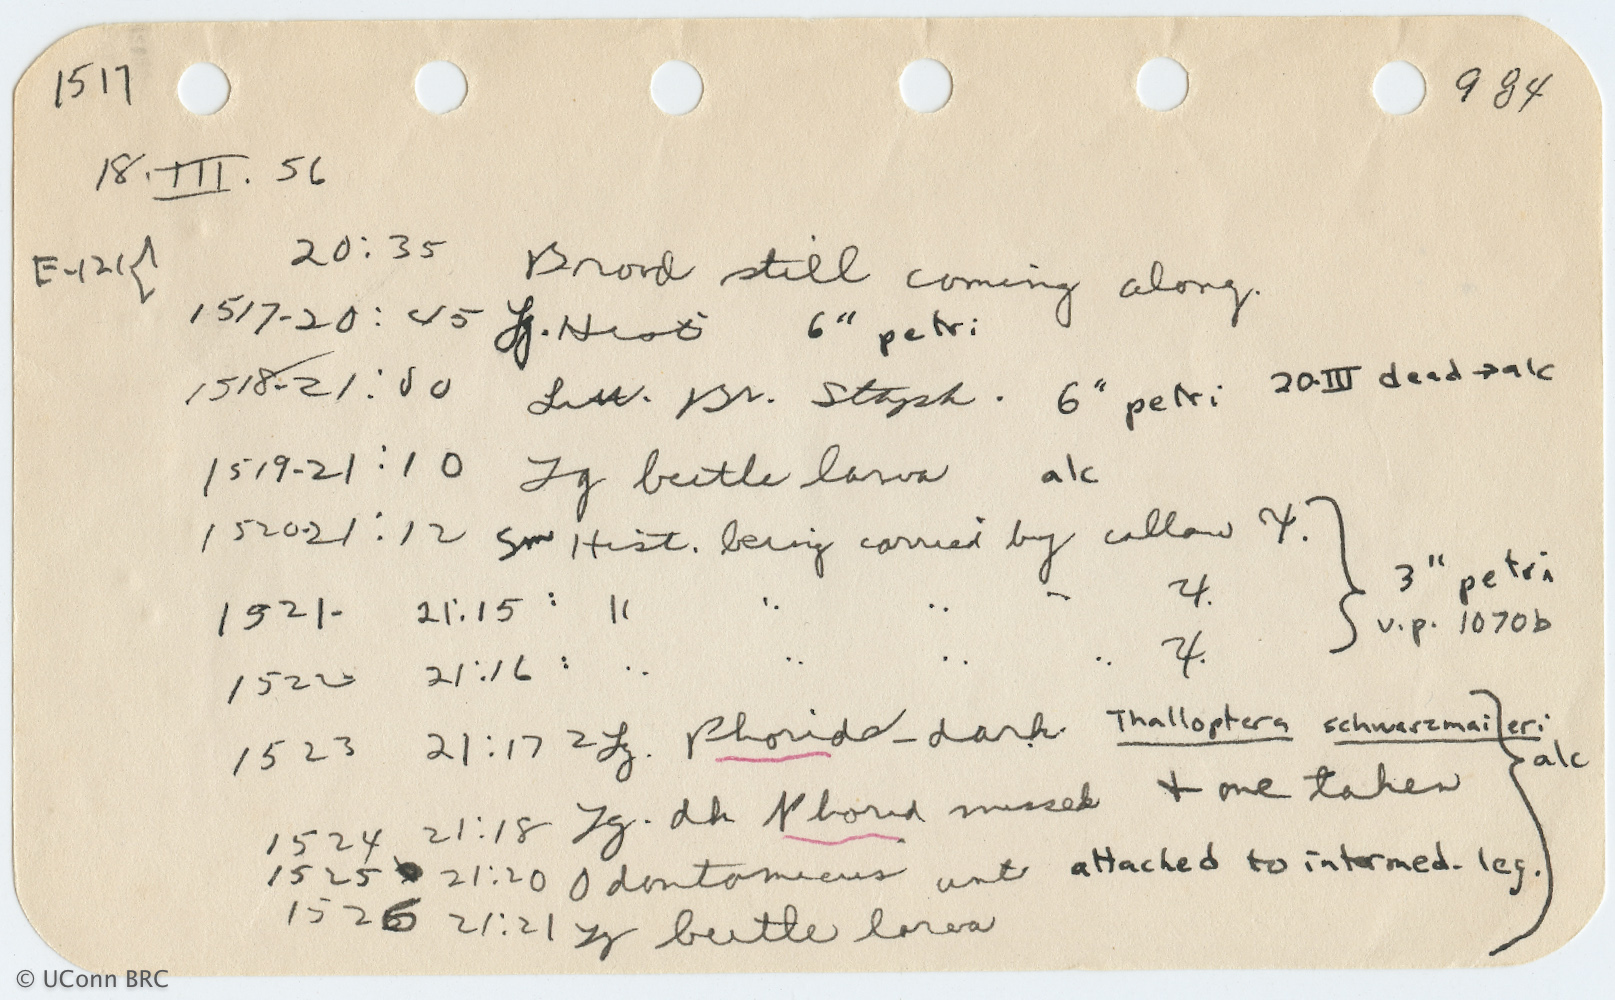 1517 984
18.III.56
E-121{ 20:35 Brood still coming along.
1517-20:45 Lg. Hist 6" petri
1518-21:00 Br. Staph. 6" petri 20-III dead→alc
1519-21:10 Lg beetle larva alc
1520-21:12 Sm Hist. being carried by callow ♃.
1521- 21:15: " " " " ♃. 3" petri
v.p. 1070b
1522 21:16: " " " " ♃.
1523 21:17 2 Lg. Phorids - dark Thalloptera schwarzmaieri
alc
1524 21:18 Lg. dk Phorid missed + one taken
1525 21:20 Odontomacus ant attached to intermed. leg.
1526 21:21 Lg beetle larva
© UConn BRC